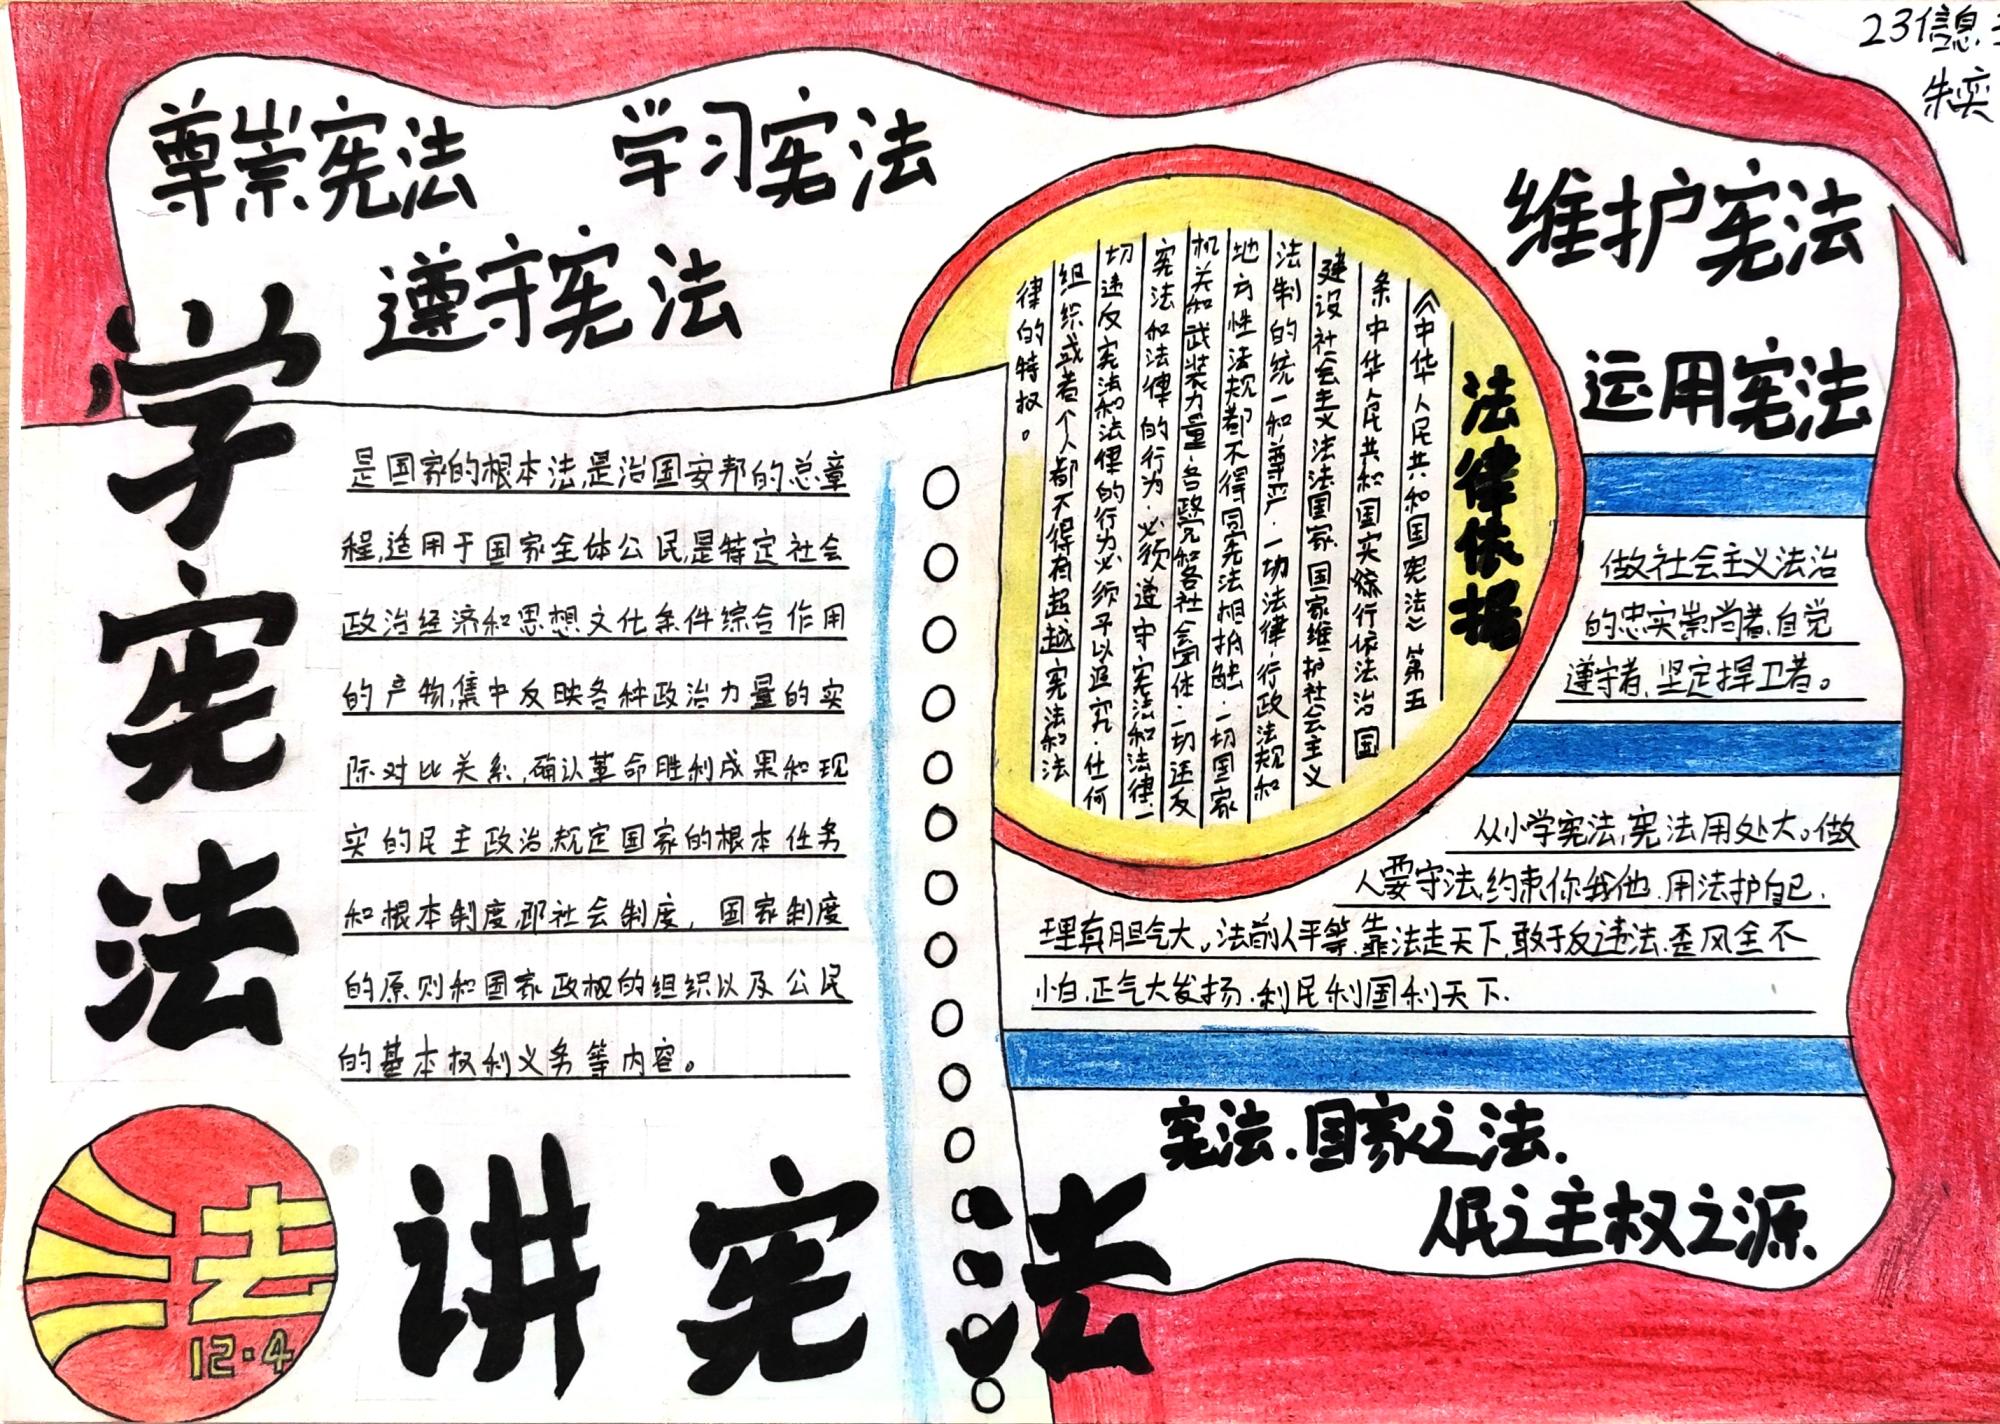 23信息
朱奕
尊崇宪法
学习宪法
遵守宪法
维护宪法
运用宪法
学宪法
是国家的根本法,是治国安邦的总章
程,适用于国家全体公民,是特定社会
政治经济和思想文化条件综合作用
的产物,集中反映各种政治力量的实
际对比关系,确认革命胜利成果和现
实的民主政治,规定国家的根本任务
和根本制度,即社会制度,国家制度
的原则和国家政权的组织以及公民
的基本权利义务等内容。
法律依据
《中华人民共和国宪法》第五
条中华人民共和国实施行依法治国
建设社会主义法法国家国家维护社会主义
法制的统一和尊严.一切法律.行政法规和
地方性法规都不得同宪法相抵触.一切国家
机关和武装力量各政党和各社会团体.一切违反
宪法和法律的行为.必须遵守宪法和法律.一
切违反宪法和法律的行为必须予以追究.任何
组织或者个人都不得有超越宪法和法
律的特权。
做社会主义法治
的忠实崇尚者,自觉
遵守者,坚定捍卫者。
从小学宪法,宪法用处大。做
人要守法,约束你我他.用法护自己.
理真胆气大。法前人平等.靠法走天下.敢于反违法.歪风全不
怕.正气大发扬.利民利国利天下.
宪法.国家之法.
人民之主权之源.
法
12·4
讲宪法